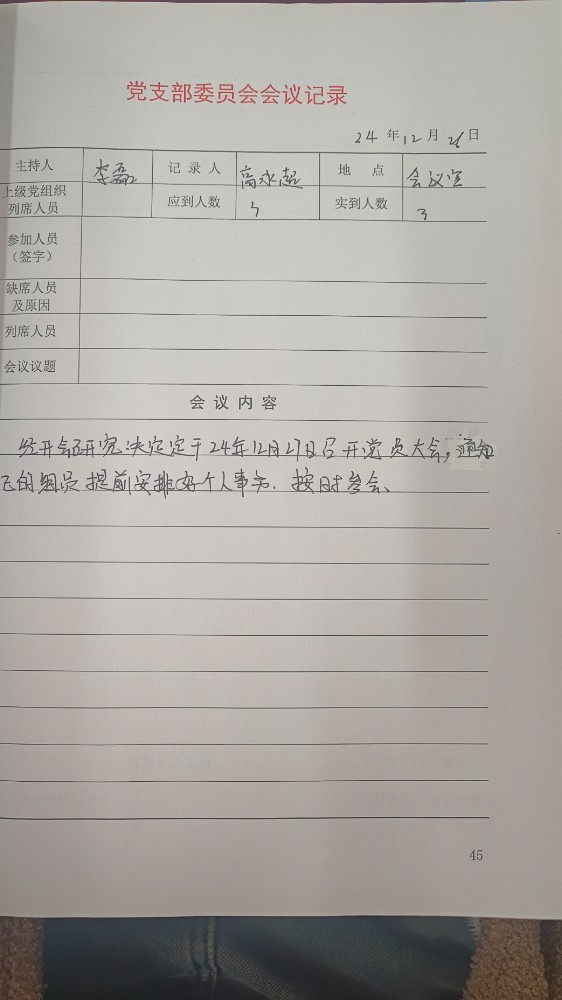 党支部委员会会议记录
24 年 12 月 26 日
主持人 李磊 记录人 高永超 地点 会议室
上级党组织
列席人员 应到人数 3 实到人数 3
参加人员
（签字）
缺席人员
及原因
列席人员
会议议题
会议内容
经开会研究决定定于24年12月27日召开党员大会，通知
的党员提前安排好个人事务．按时参会、
45